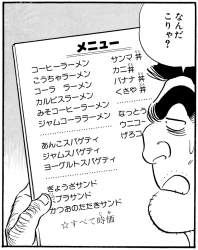 なんだ
こりゃ?
メニュー
コーヒーラーメン
こうちゃラーメン
コーラ ラーメン
カルピスラーメン
みそコーヒーラーメン
ジャムコーララーメン
あんこスパゲティ
ジャムスパゲティ
ヨーグルトスパゲティ
ぎょうざサンド
プラサンド
かつおのたたきサンド
サンマ丼
カニ丼
バナナ丼
くさや丼
なっとう
ウニコー
げろコ
☆すべて時価